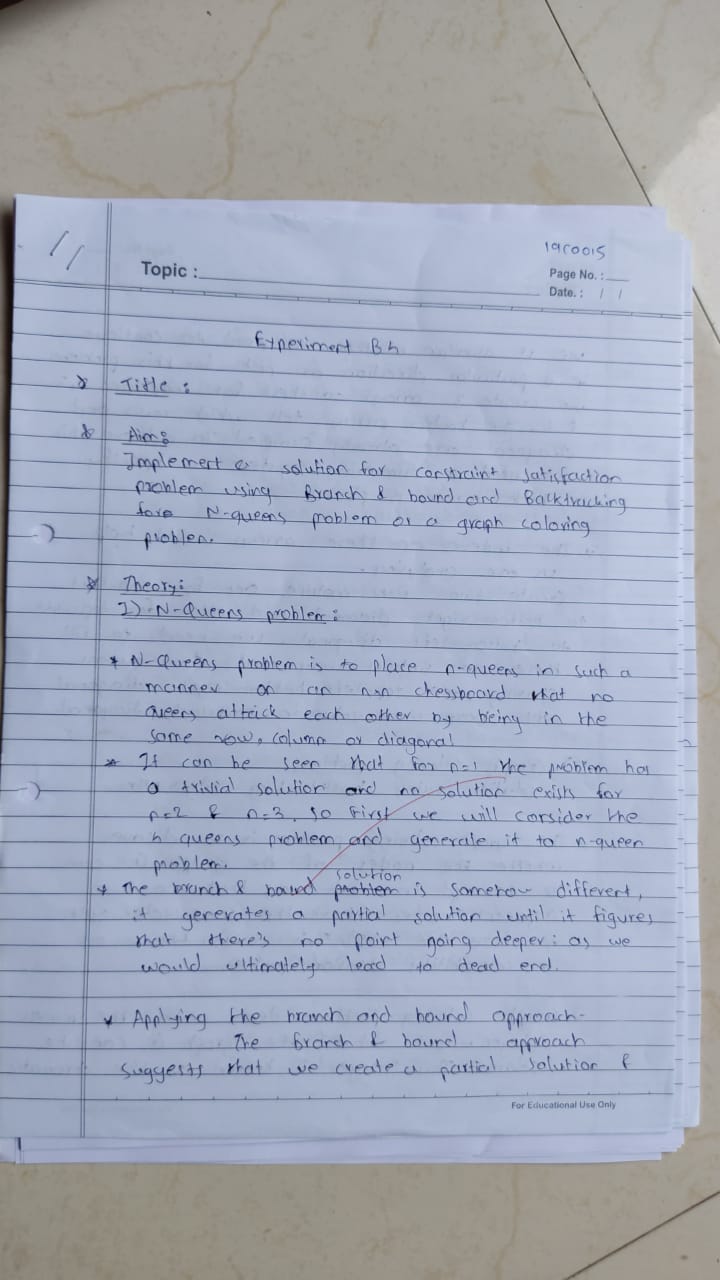 19C0015
Topic :
Page No. :
Date. : / /
Experiment B4
* Title :
* Aim :
Implement a solution for constraint satisfaction
problem using Branch & bound and Backtracking
for N-queens problem or a graph coloring
problem.
* Theory :
1) N-Queens problem :
* N-Queens problem is to place n-queens in such a
manner on an nxn chessboard that no
queens attack each other by being in the
same row, column or diagonal
* It can be seen that for n=1 the problem has
a trivial solution and no solution exists for
n=2 & n=3, so first we will consider the
4 queens problem and generate it to n-queen
problem.
solution
* The branch & bound problem is somehow different,
it generates a partial solution until it figures
that there's no point going deeper : as we
would ultimately lead to dead end.
* Applying the branch and bound approach-
The branch & bound approach
suggests that we create a partial solution &
For Educational Use Only